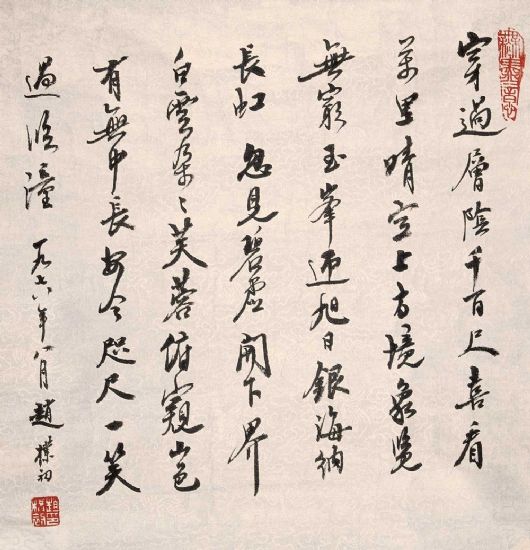 穿過層陰千百尺喜看
萬里晴空上方境象覽
無窮玉峯迎旭日銀海納
長虹忽見碧虛開下界
白雲朵〻芙蓉俯窺山色
有無中長安今咫尺一笑
過臨潼 一九七六年八月趙樸初